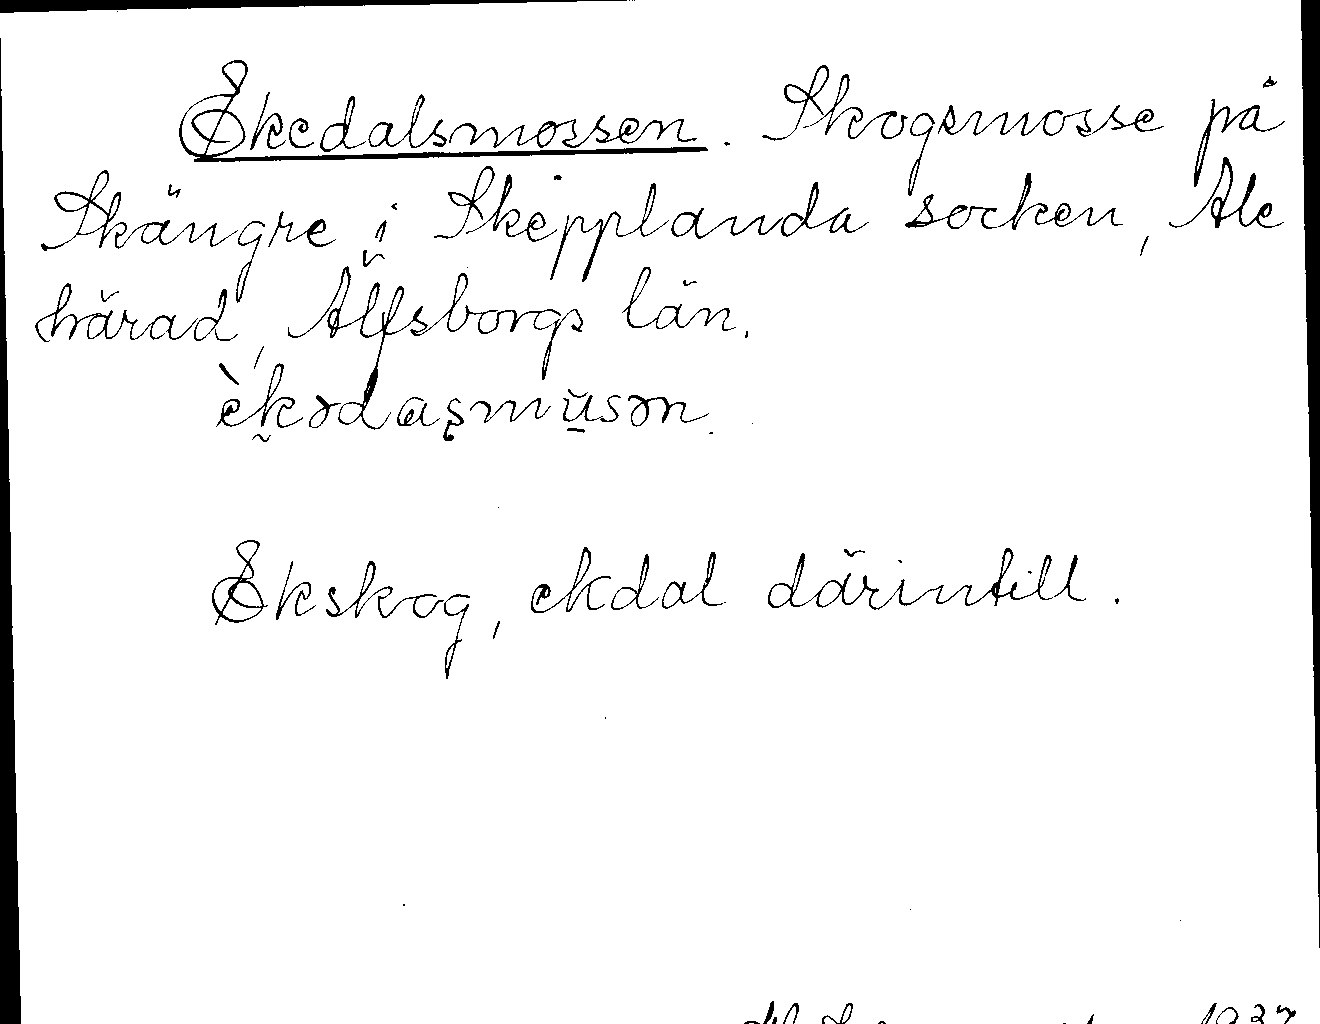 Ekedalsmossen. Skogsmosse på
Skängre i Skepplanda socken, Ale
härad, Älfsborgs län.
èkədasmusən.
Ekskog, ekdal därintill.
1937